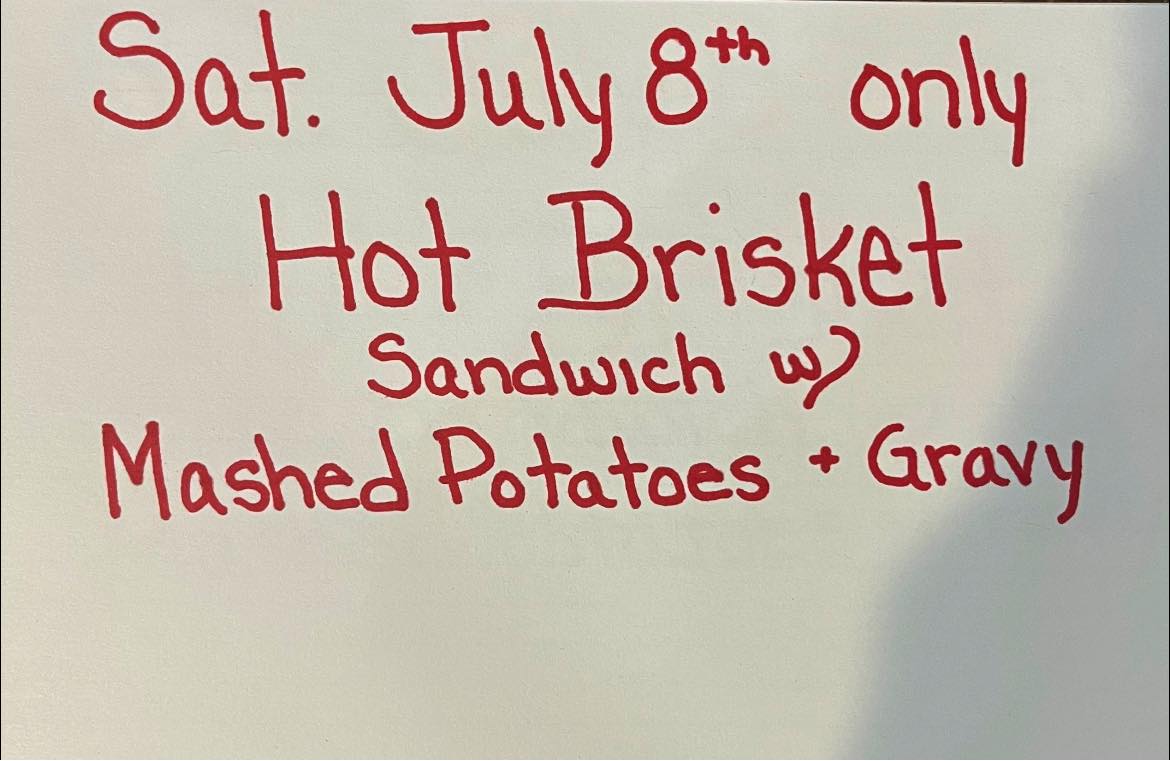 Sat. July 8th only
Hot Brisket
Sandwich w/
Mashed Potatoes + Gravy